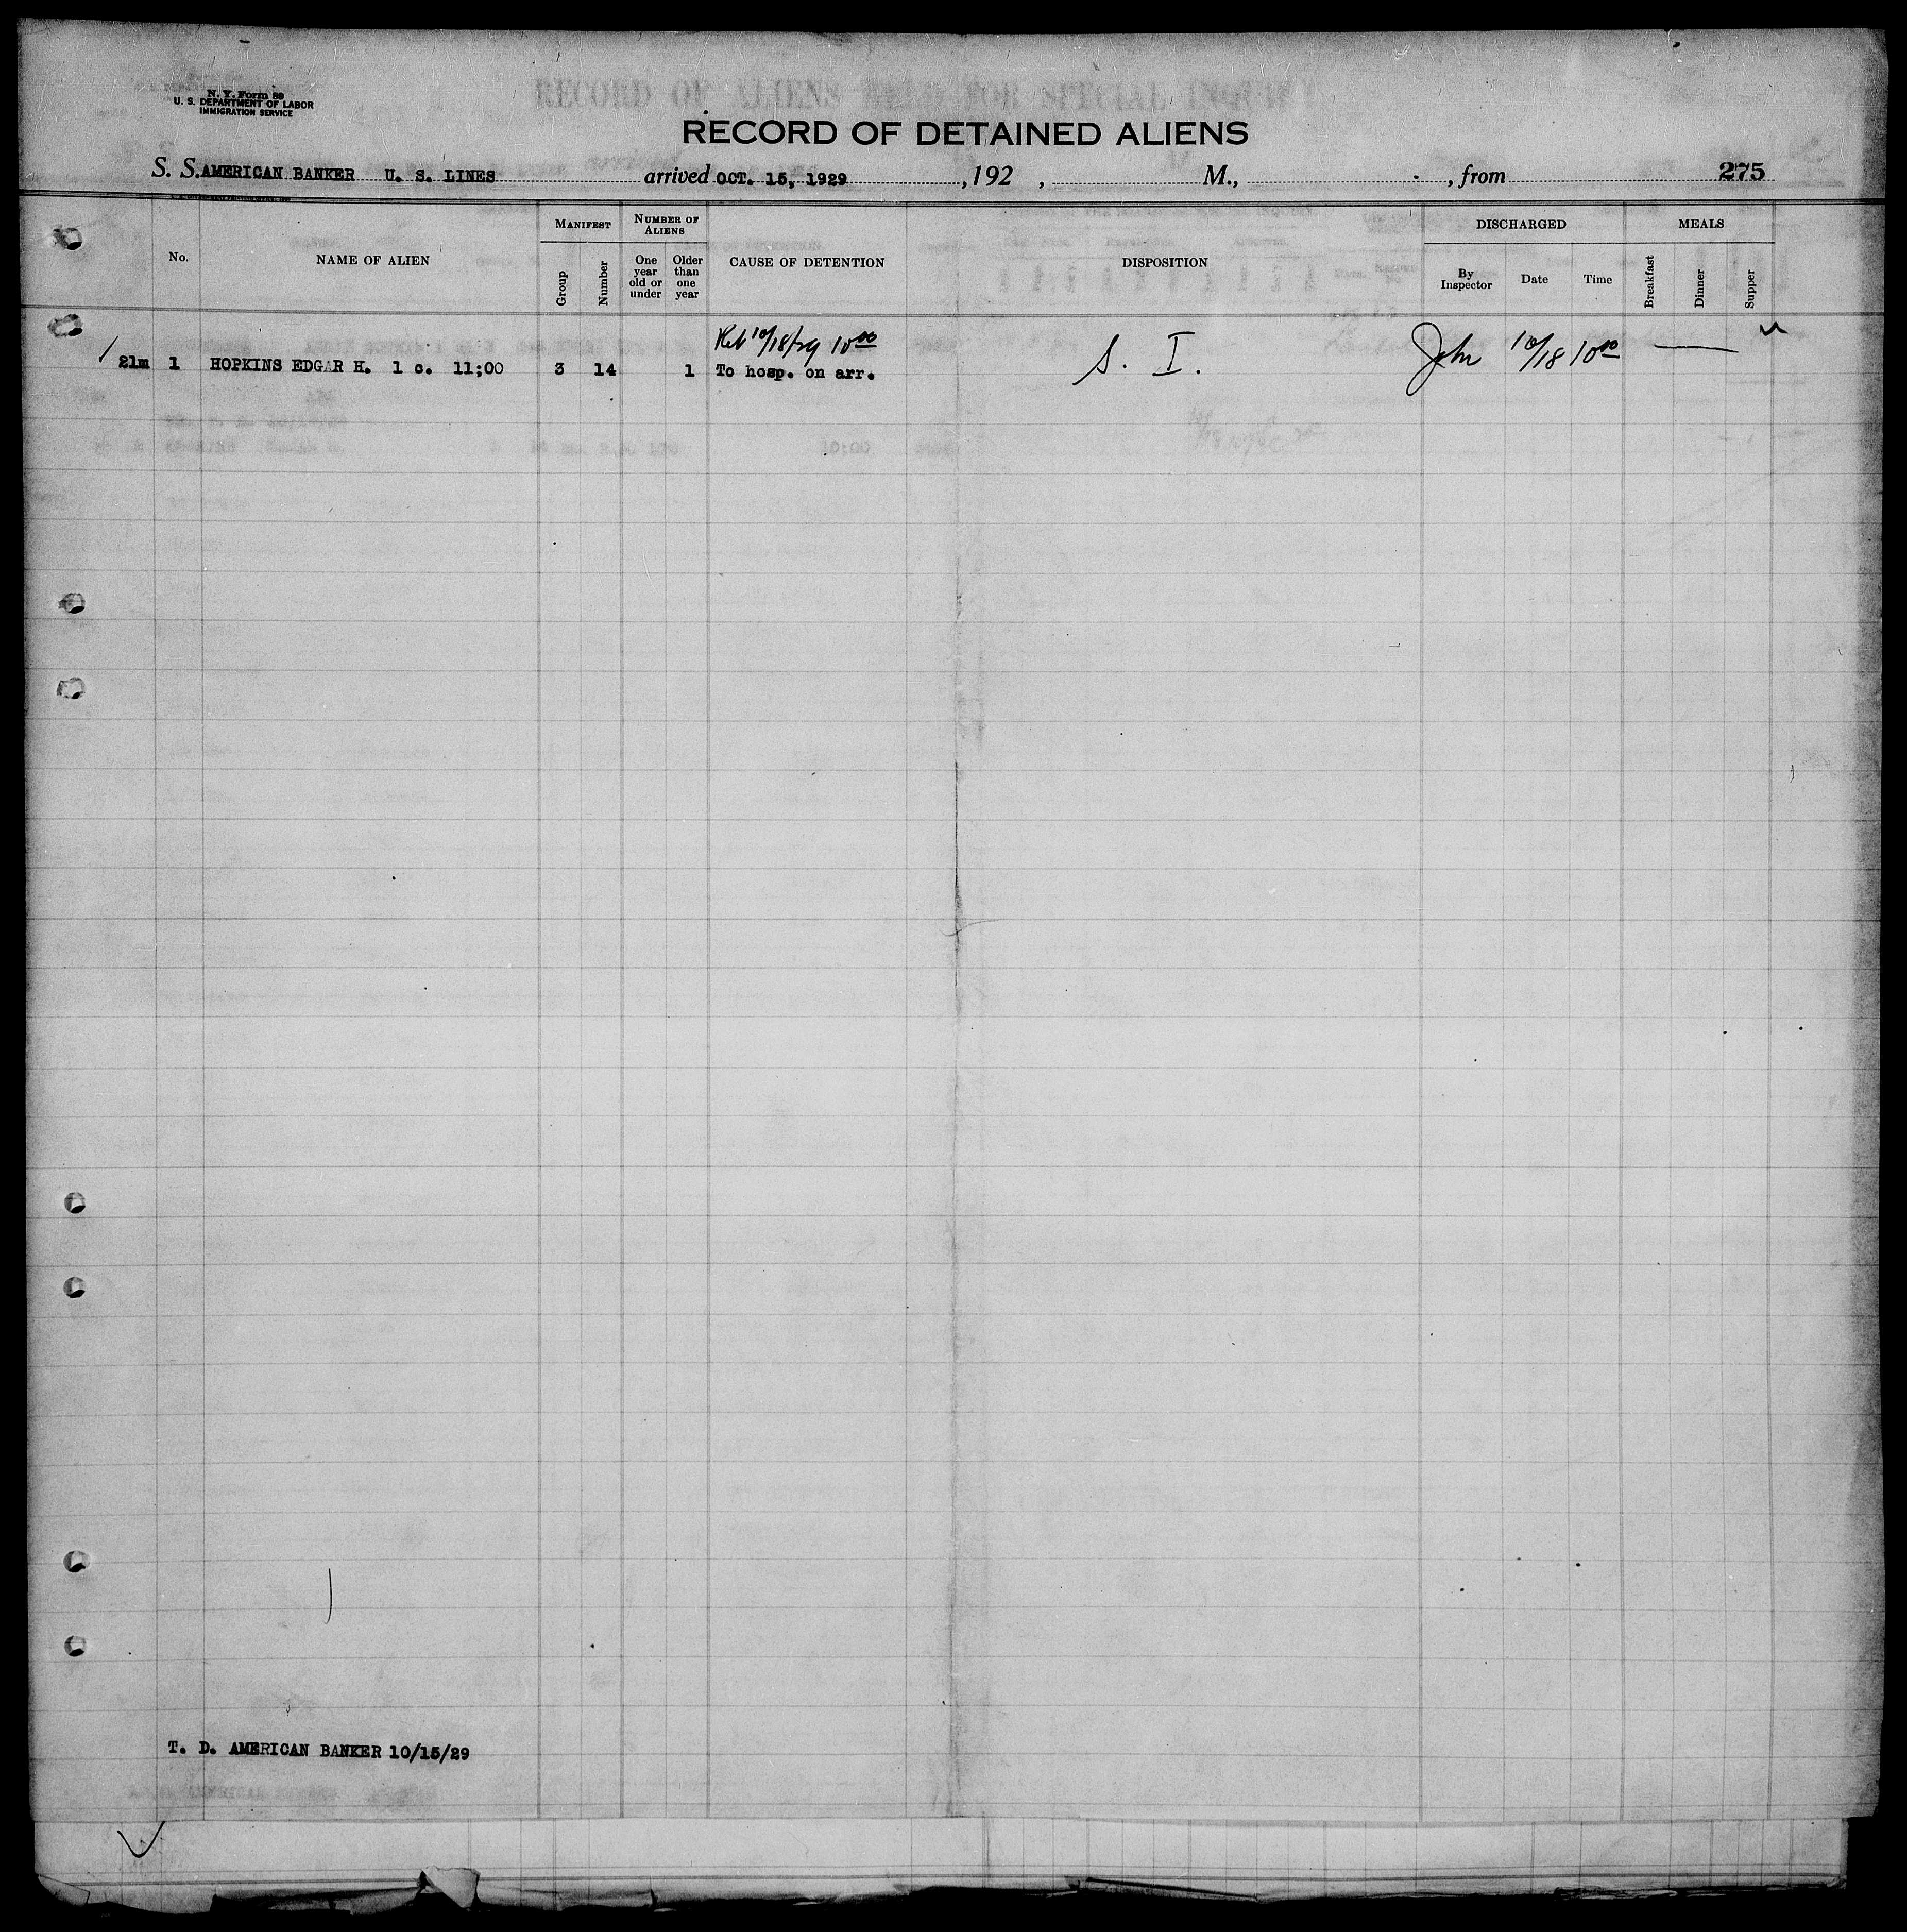 N. Y. Form 89
U. S. DEPARTMENT OF LABOR
IMMIGRATION SERVICE
RECORD OF ALIENS HELD FOR SPECIAL INQUIRY
RECORD OF DETAINED ALIENS
S. S. AMERICAN BANKER U. S. LINES arrived OCT. 15, 1929 , 192 , M., , from 275
No. NAME OF ALIEN MANIFEST NUMBER OF ALIENS CAUSE OF DETENTION DISPOSITION DISCHARGED MEALS
Group Number One year old or under Older than one year By Inspector Date Time Breakfast Dinner Supper
10/18/29 10 00
21m 1 HOPKINS EDGAR H. 1 c. 11;00 3 14 1 To hosp. on arr. S. I. John 10/18 10 00
T. D. AMERICAN BANKER 10/15/29